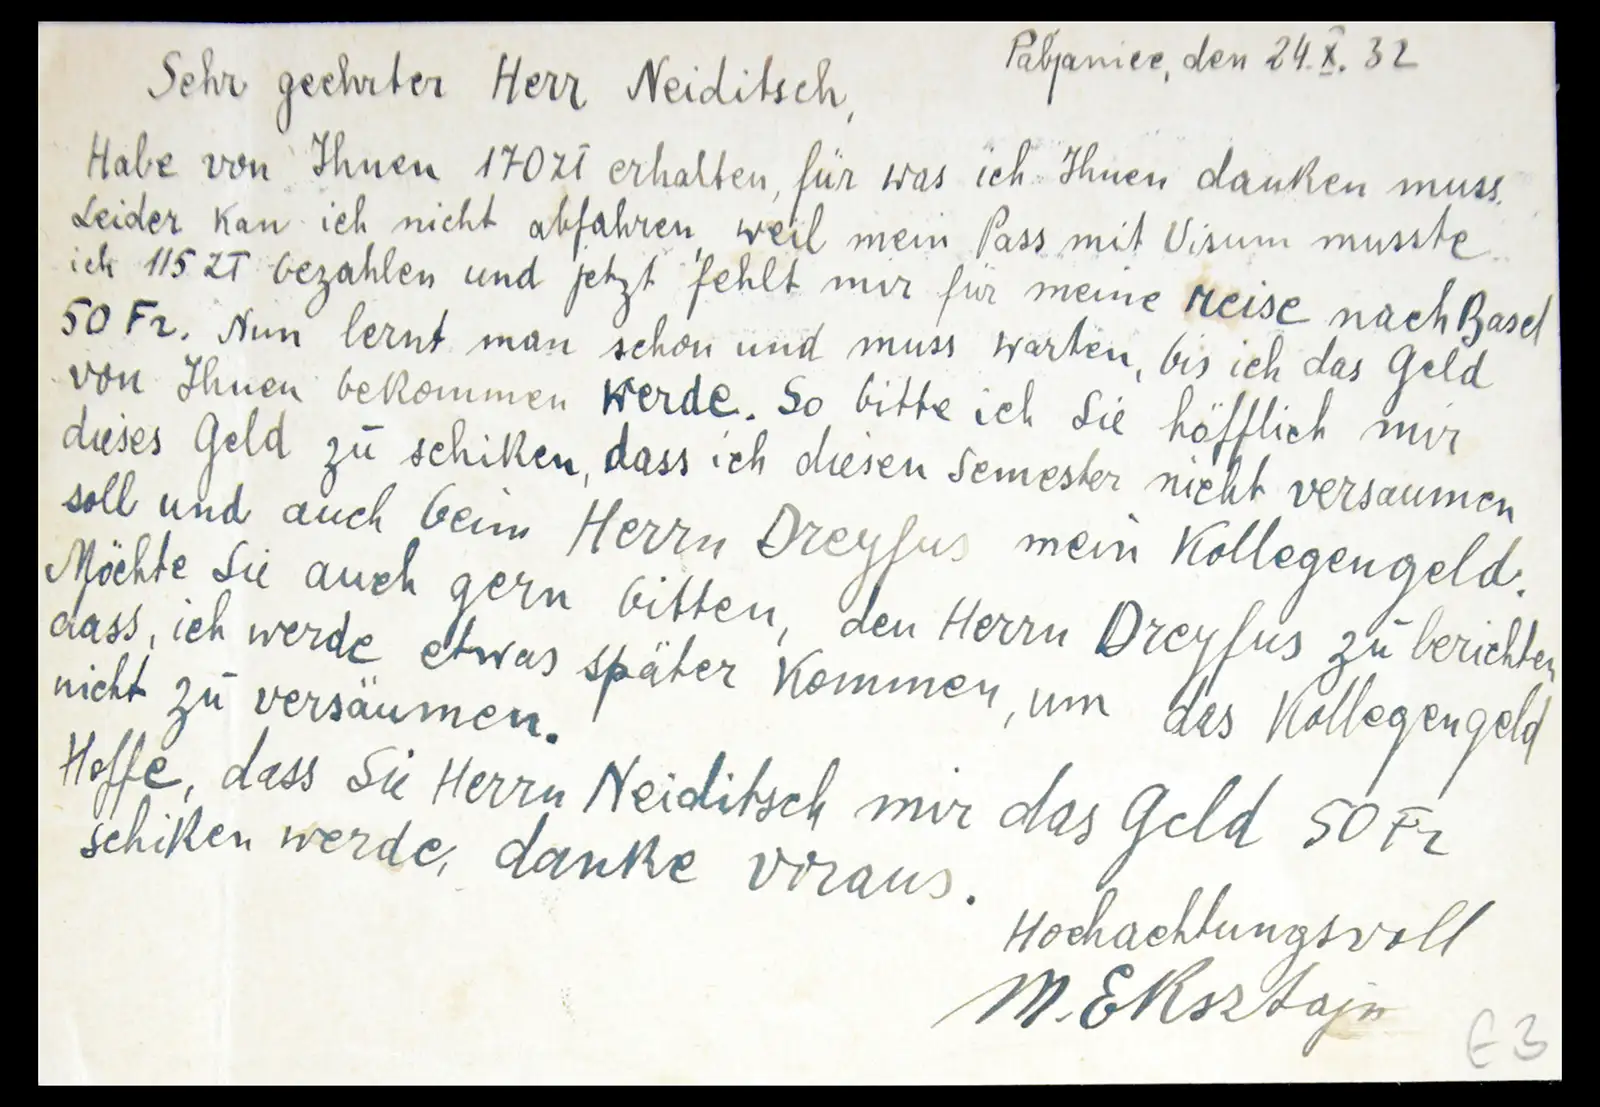 Pabjanice, den 24.X.32
Sehr geehrter Herr Neiditsch,
Habe von Ihnen 170 zł erhalten, für was ich Ihnen danken muss.
Leider kan ich nicht abfahren, weil mein Pass mit Visum musste
ich 115 zł bezahlen und jetzt fehlt mir für meine reise nach Basel
50 Fr. Nun lernt man schon und muss warten, bis ich das Geld
von Ihnen bekommen werde. So bitte ich Sie höfflich mir
dieses Geld zu schiken, dass ich diesen Semester nicht versaumen
soll und auch beim Herrn Dreyfus mein Kollegengeld.
Möchte Sie auch gern bitten, den Herrn Dreyfus zu berichten,
dass, ich werde etwas später kommen, um das Kollegengeld
nicht zu versäumen.
Hoffe, dass Sie Herrn Neiditsch mir das Geld 50 Fr
schiken werde, danke voraus.
Hochachtungsvoll
M. Eksztajn
E3